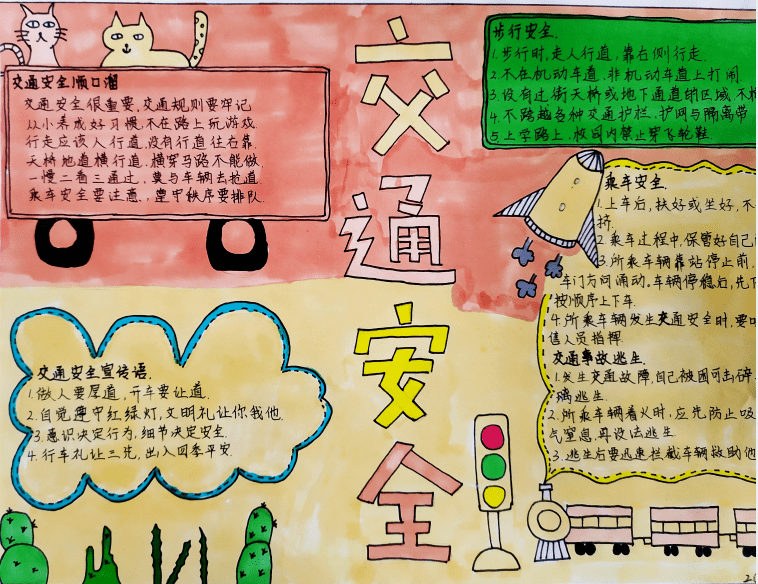 交通安全顺口溜
交通安全很重要,交通规则要牢记
从小养成好习惯,不在路上玩游戏.
行走应该人行道,没有行道往右靠.
天桥地道横行道,横穿马路不能做
一慢二看三通过,莫与车辆去抢道.
乘车安全要注意,遵守秩序要排队.
交
通
安
全
步行安全.
1.步行时,走人行道,靠右侧行走.
2.不在机动车道,非机动车道上打闹.
3.没有过街天桥或地下通道的区域,不
4.不跨越各种交通护栏,护网与隔离带
5.上学路上,校园内禁止穿飞轮鞋.
乘车安全.
1.上车后,扶好或坐好,不
挤.
2.乘车过程中,保管好自己
3.所乘车辆靠站停止前,
车门方向涌动,车辆停稳后,先下
按顺序上下车.
4.所乘车辆发生交通安全时,要
信人员指挥.
交通事故逃生.
1.发生交通故障,自己被困可击碎
璃逃生.
2.所乘车辆着火时,应先防止吸
气窒息,再设法逃生
3.逃生后要迅速拦截车辆救助他
交通安全宣传语.
1.做人要厚道,开车要让道.
2.自觉遵守红绿灯,文明礼让你我他.
3.意识决定行为,细节决定安全.
4.行车礼让三先,出入四季平安.